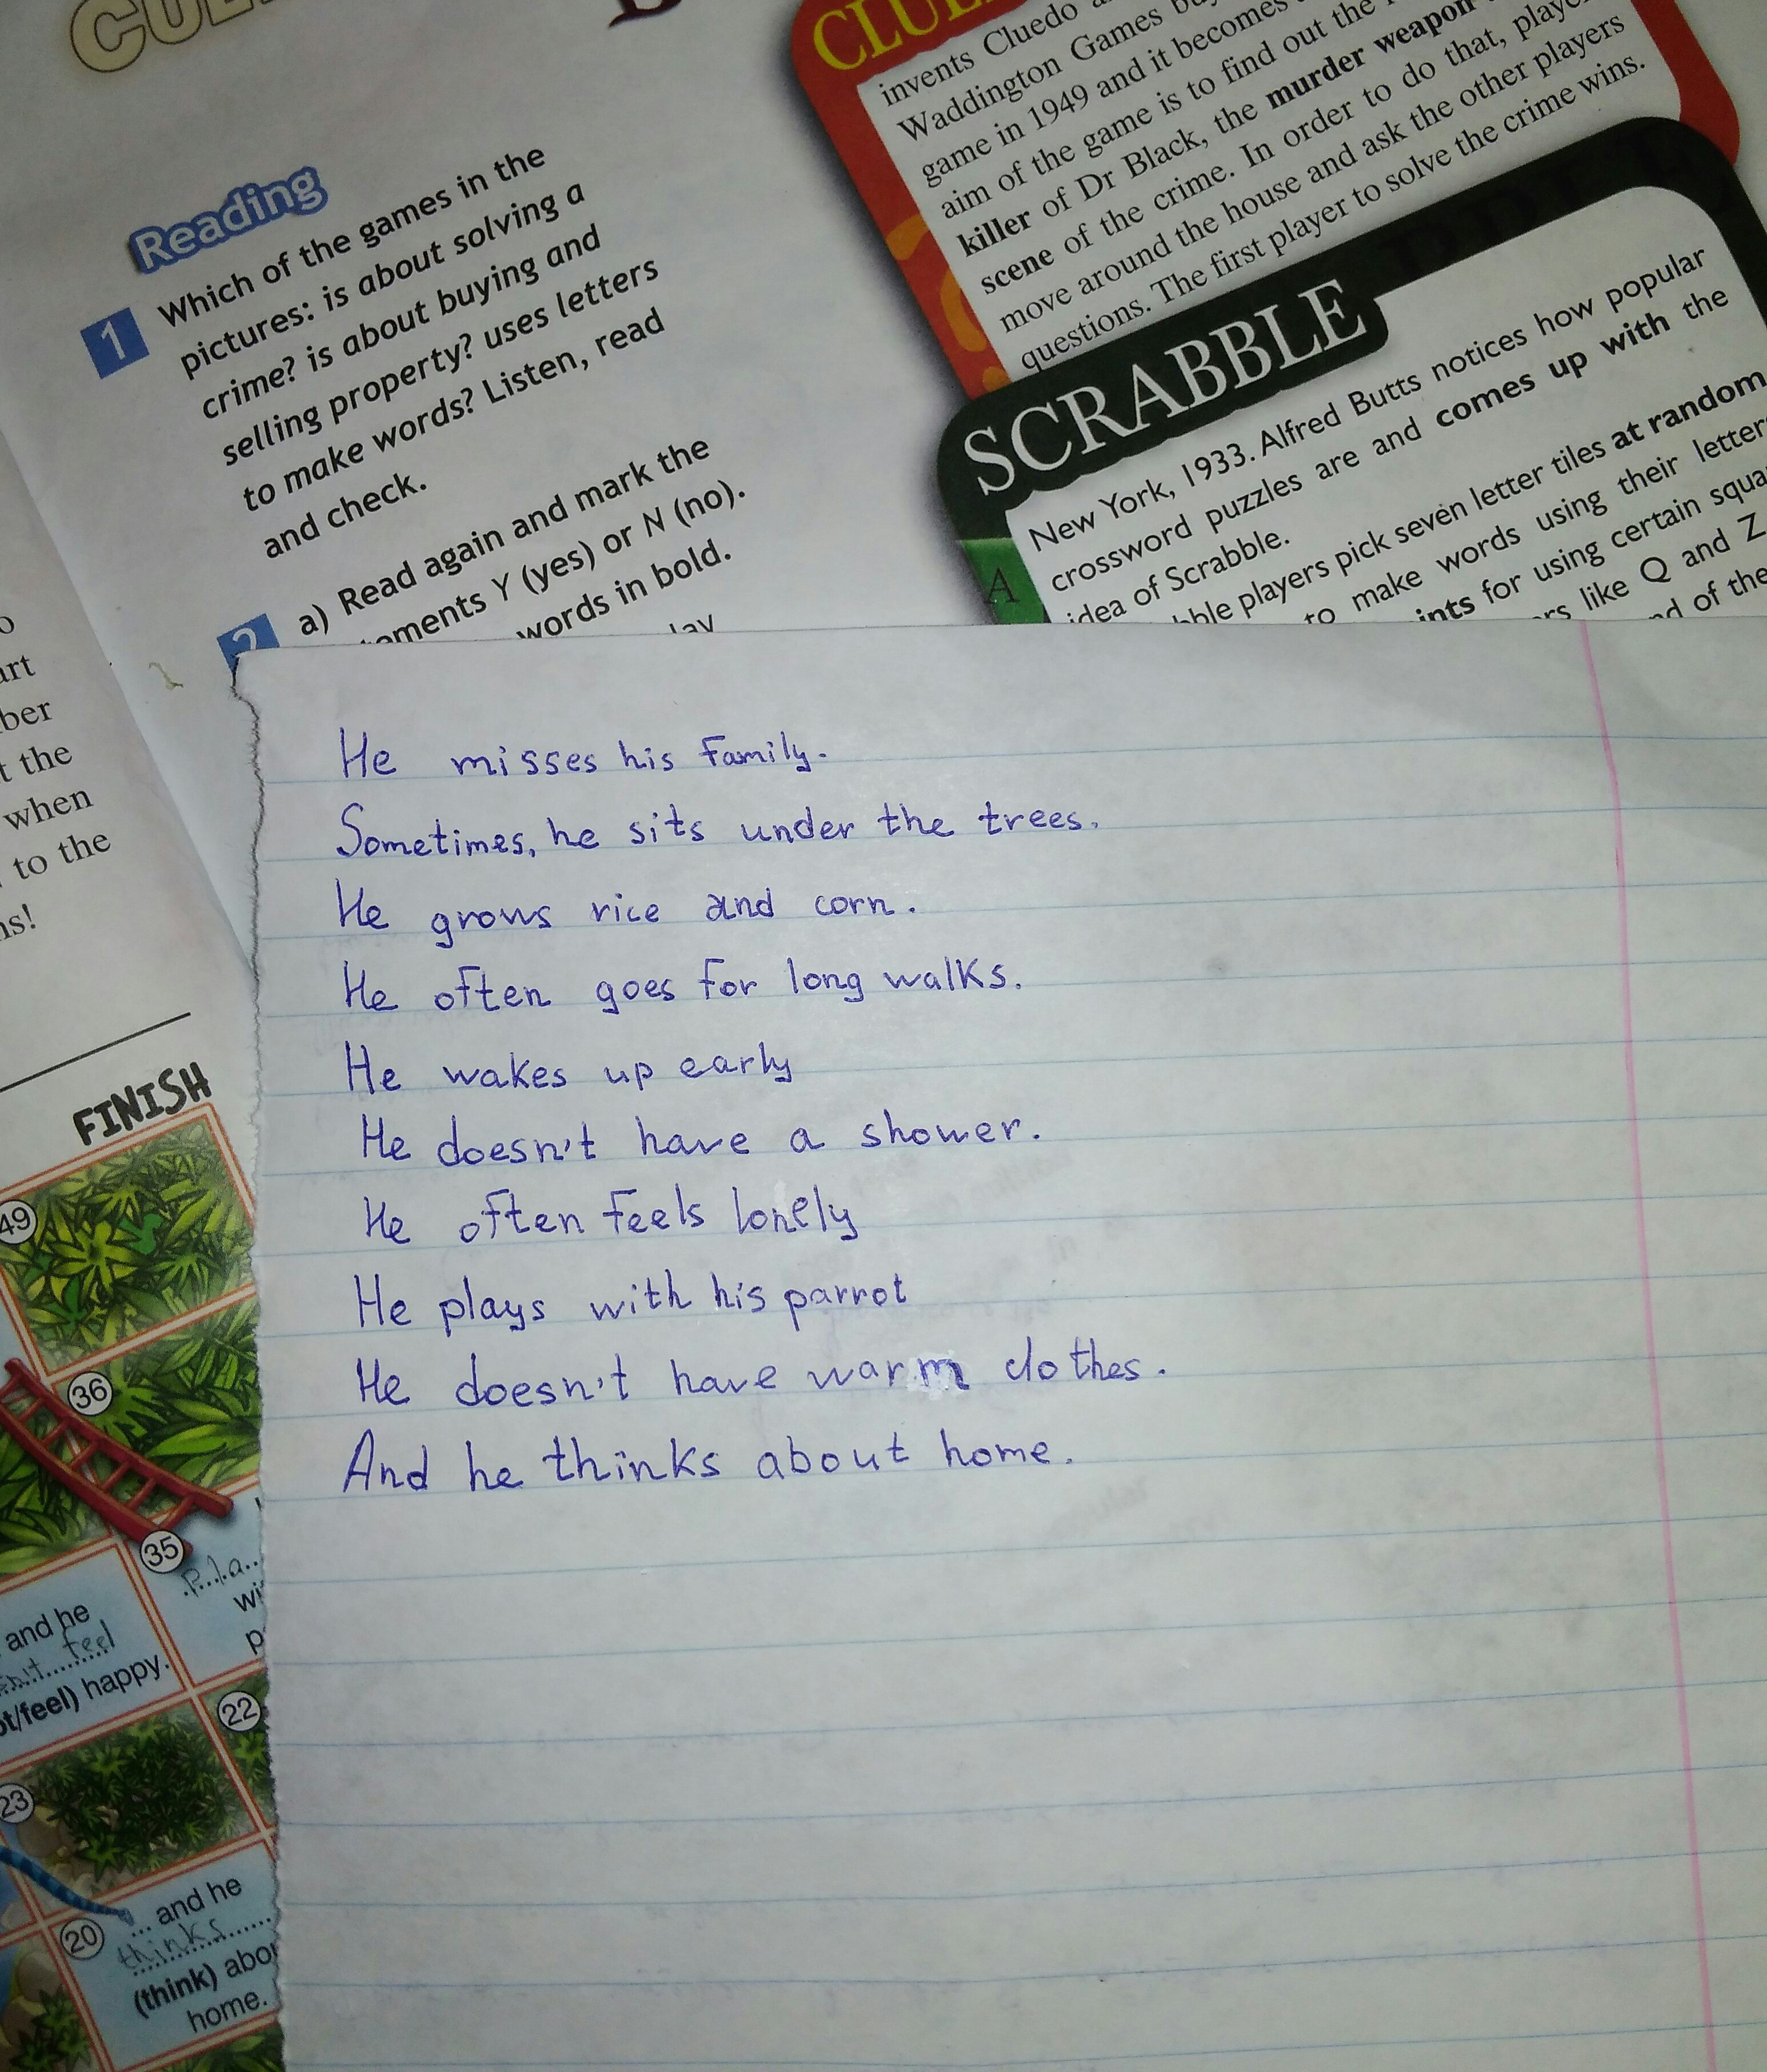 CLUE
invents Cluedo
Waddington Games
game in 1949 and it becomes
aim of the game is to find out the
killer of Dr Black, the murder weapon
scene of the crime. In order to do that,
move around the house and ask the other players
questions. The first player to solve the crime wins.
Reading
1 Which of the games in the
pictures: is about solving a
crime? is about buying and
selling property? uses letters
to make words? Listen, read
and check.
2 a) Read again and mark the
Y (yes) or N (no).
words in bold.
SCRABBLE
New York, 1933. Alfred Butts notices how popular
crossword puzzles are and comes up with the
idea of Scrabble.
players pick seven letter tiles at random
to make words using their
for using certain
like Q and Z
of the
A
the
when
to the
He misses his family.
Sometimes, he sits under the trees.
He grows rice and corn.
He often goes for long walks.
He wakes up early
He doesn't have a shower.
He often feels lonely
He plays with his parrot
He doesn't have warm clothes.
And he thinks about home.
FINISH
49
36
35
and he
feel
happy.
22
23
20
... and he
thinks
(think)
home.